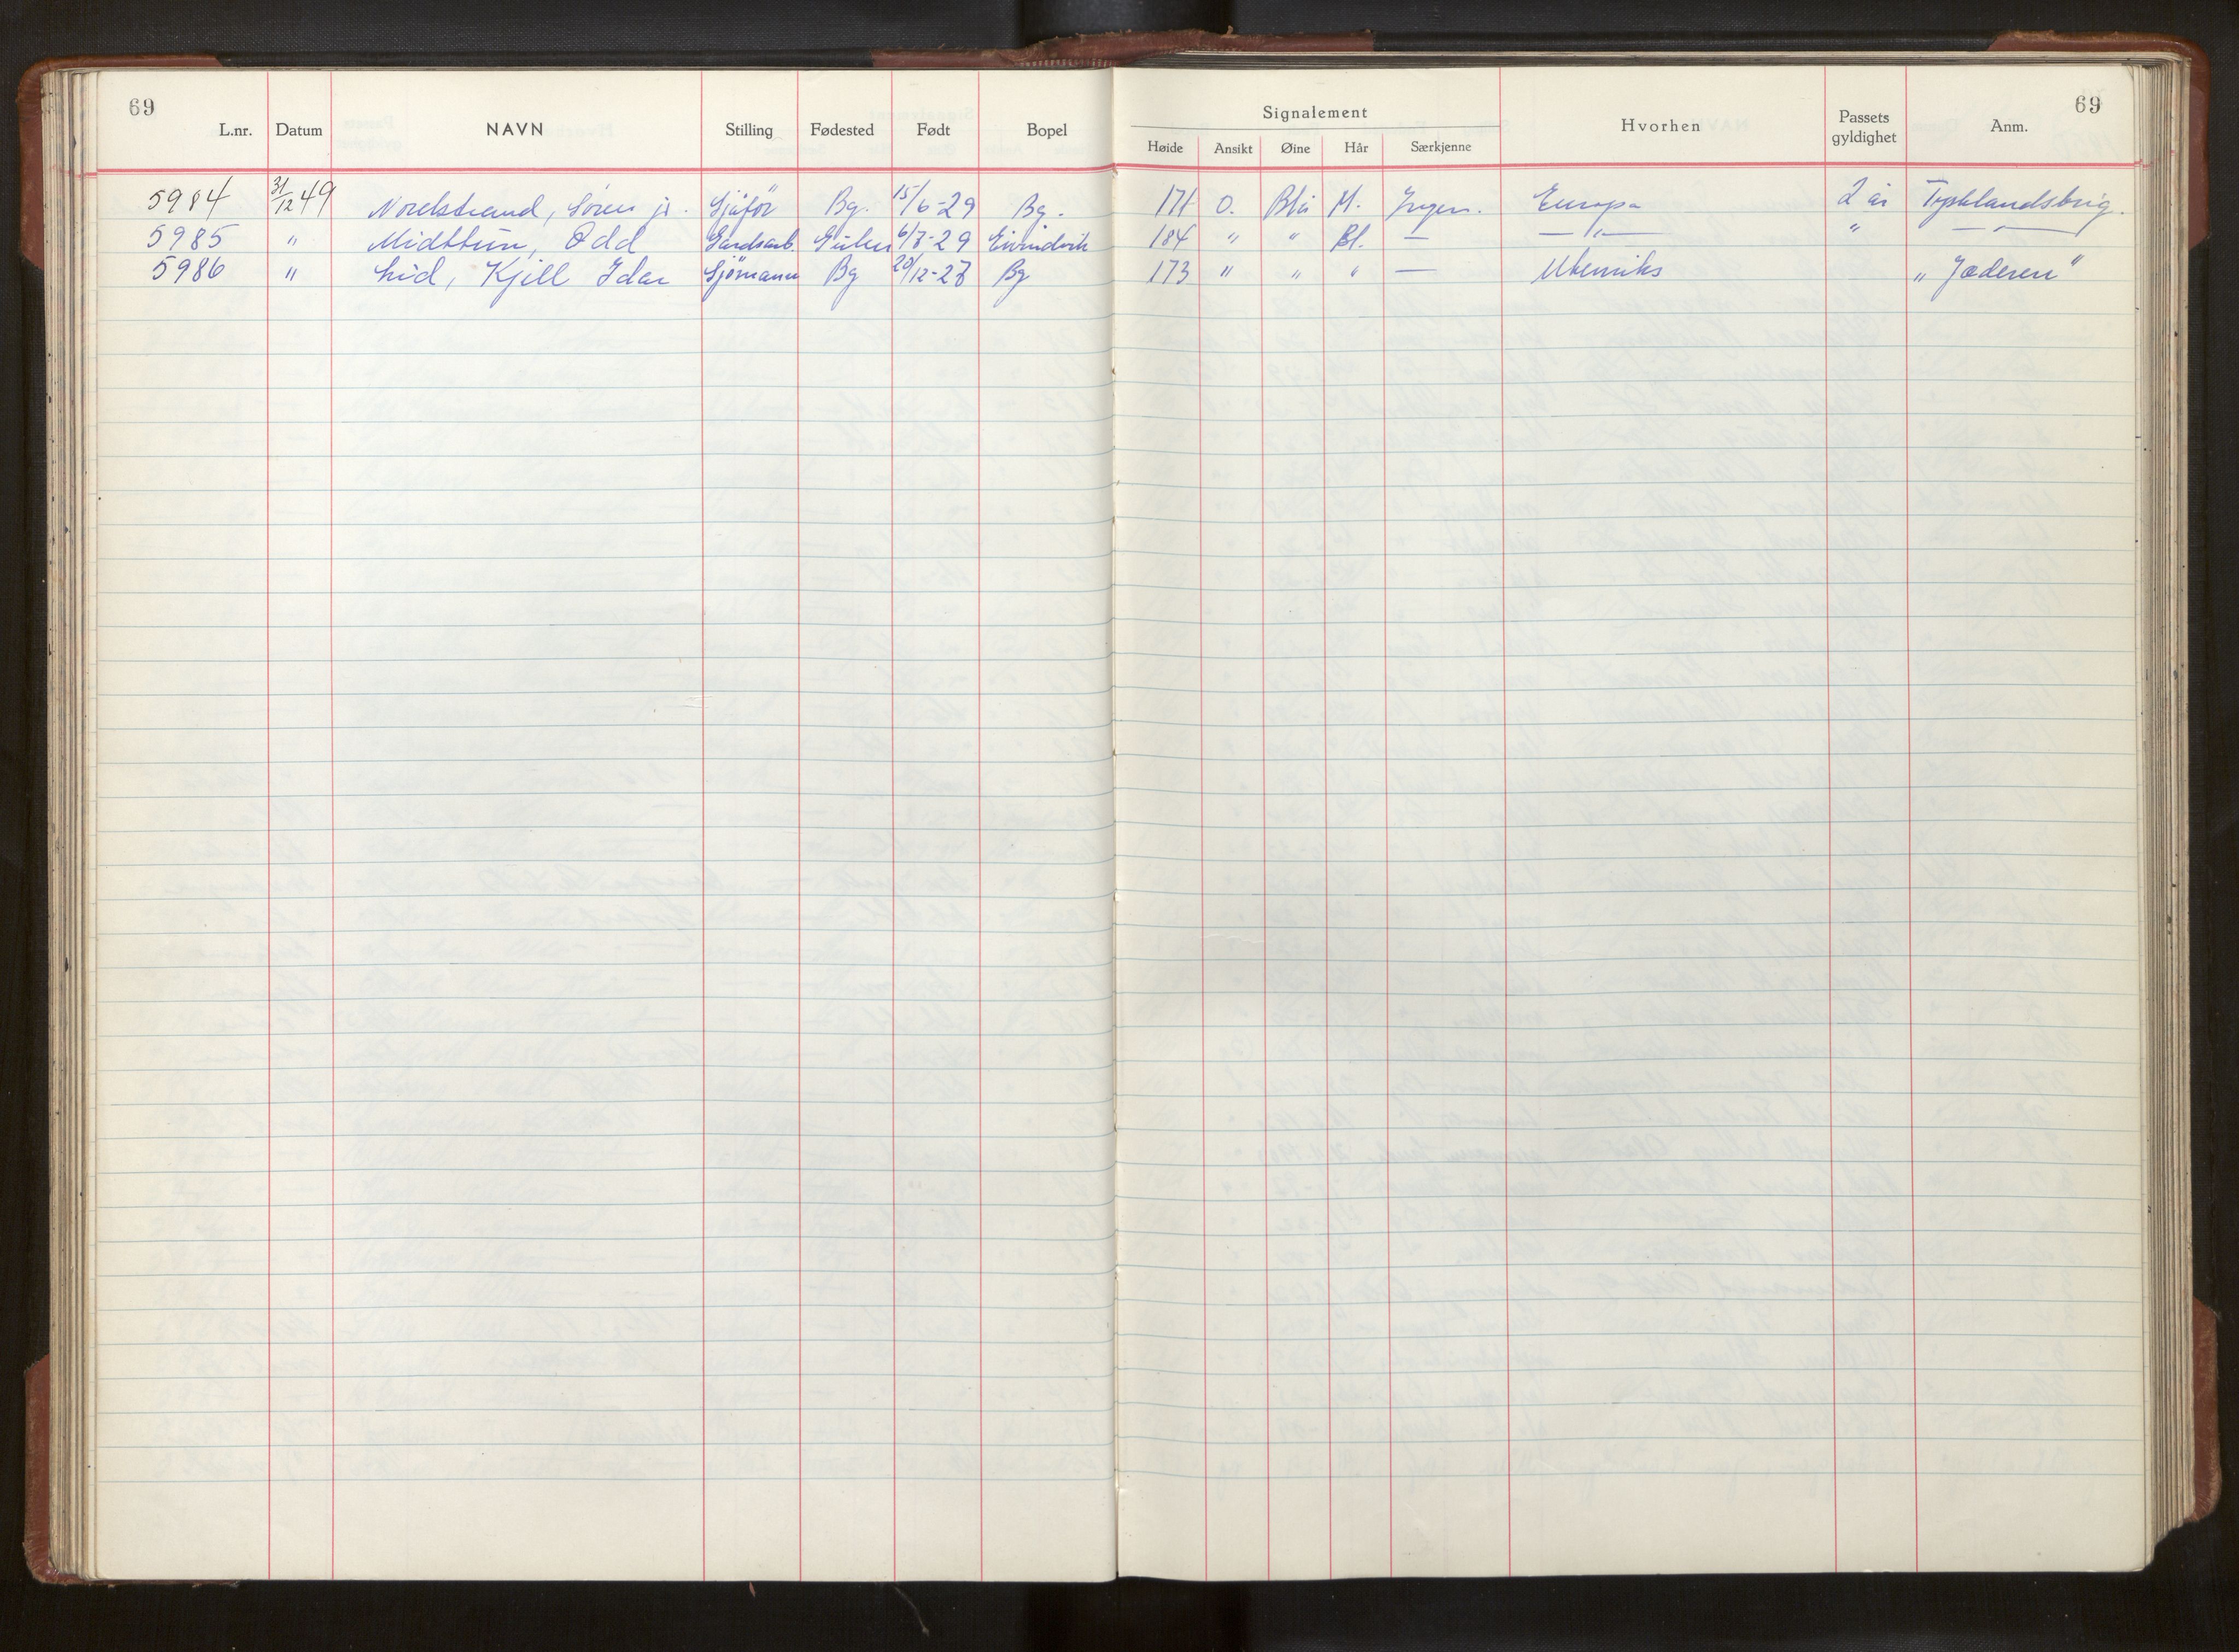 69
69
Signalement
L.nr. Datum NAVN Stilling Fødested Født Bopel Høide Ansikt Øine Hår Særkjenne Hvorhen Passets gyldighet Anm.
5984 31/12 49 Nordstrand, Sören jr. Sjåför Bg. 15/6-29 Bg. 171 O. Blå M. Ingen. Europa 2 år Tysklandsbrig.
5985 " Midttun, Odd Gardsarb. Gulen 6/8-29 Eivindvik 184 " " Bl. — —"— " —"—
5986 " Lid, Kjell Idar Sjömann Bg 20/12-28 Bg 173 " " " — Utenriks "Jæderen"